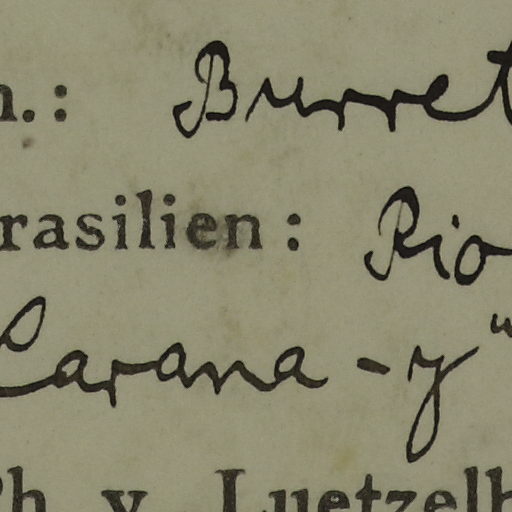 n.: Burret
rasilien: Rio
Carana-y"
Ph. v. Luetzelb